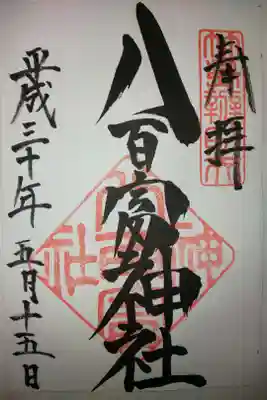 奉拝
八百富神社
平成三十年五月十五日